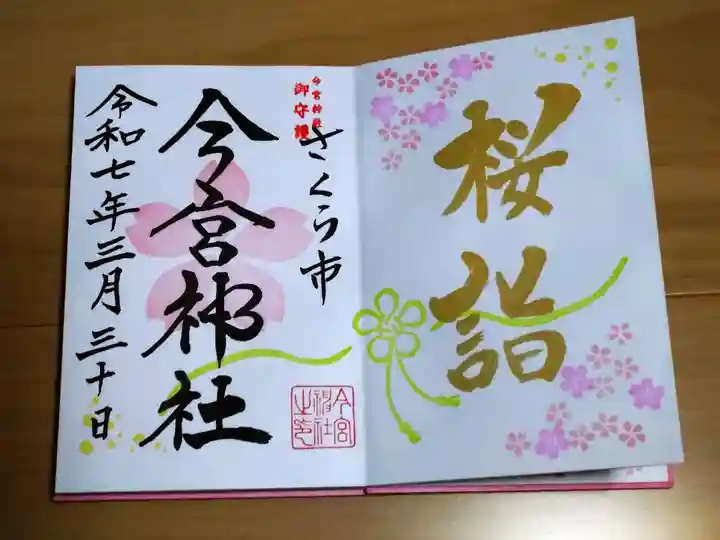 桜詣
今宮神社
御守護
さくら市
今宮神社
令和七年三月三十日
今宮
神社
之印